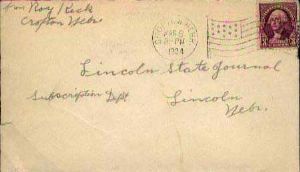 Roy Keck
Crofton Nebr.
1934
Lincoln State Journal
Subscription Dept
Lincoln
Nebr.